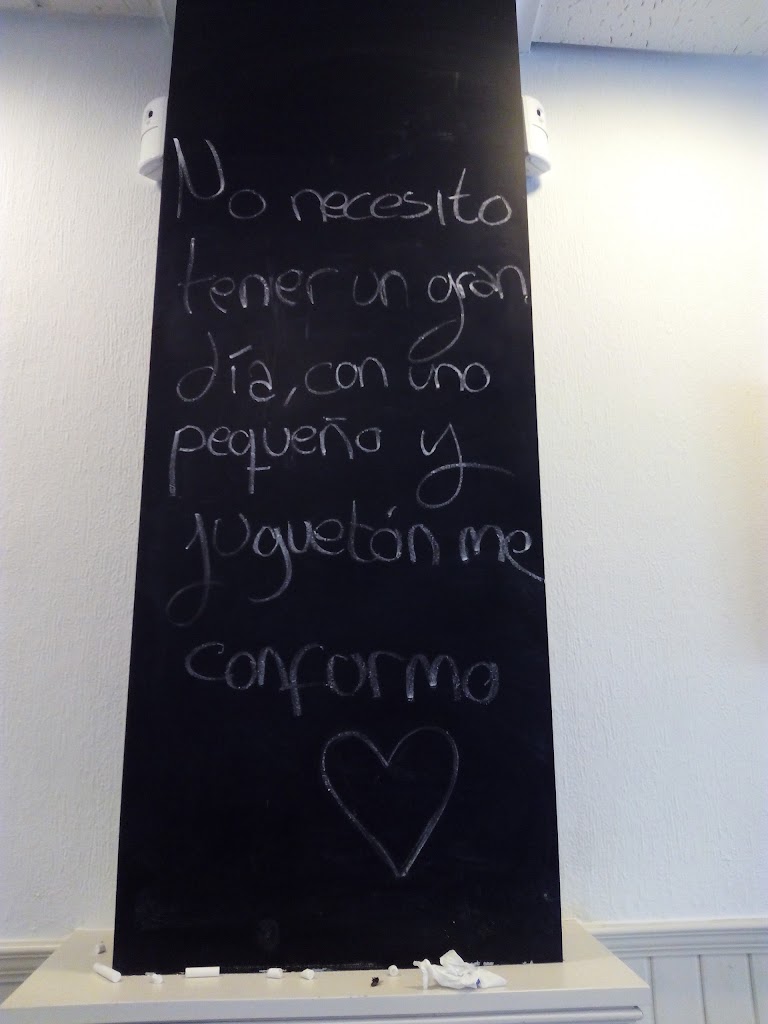 No necesito
tener un gran
día, con uno
pequeño y
juguetón me
conformo